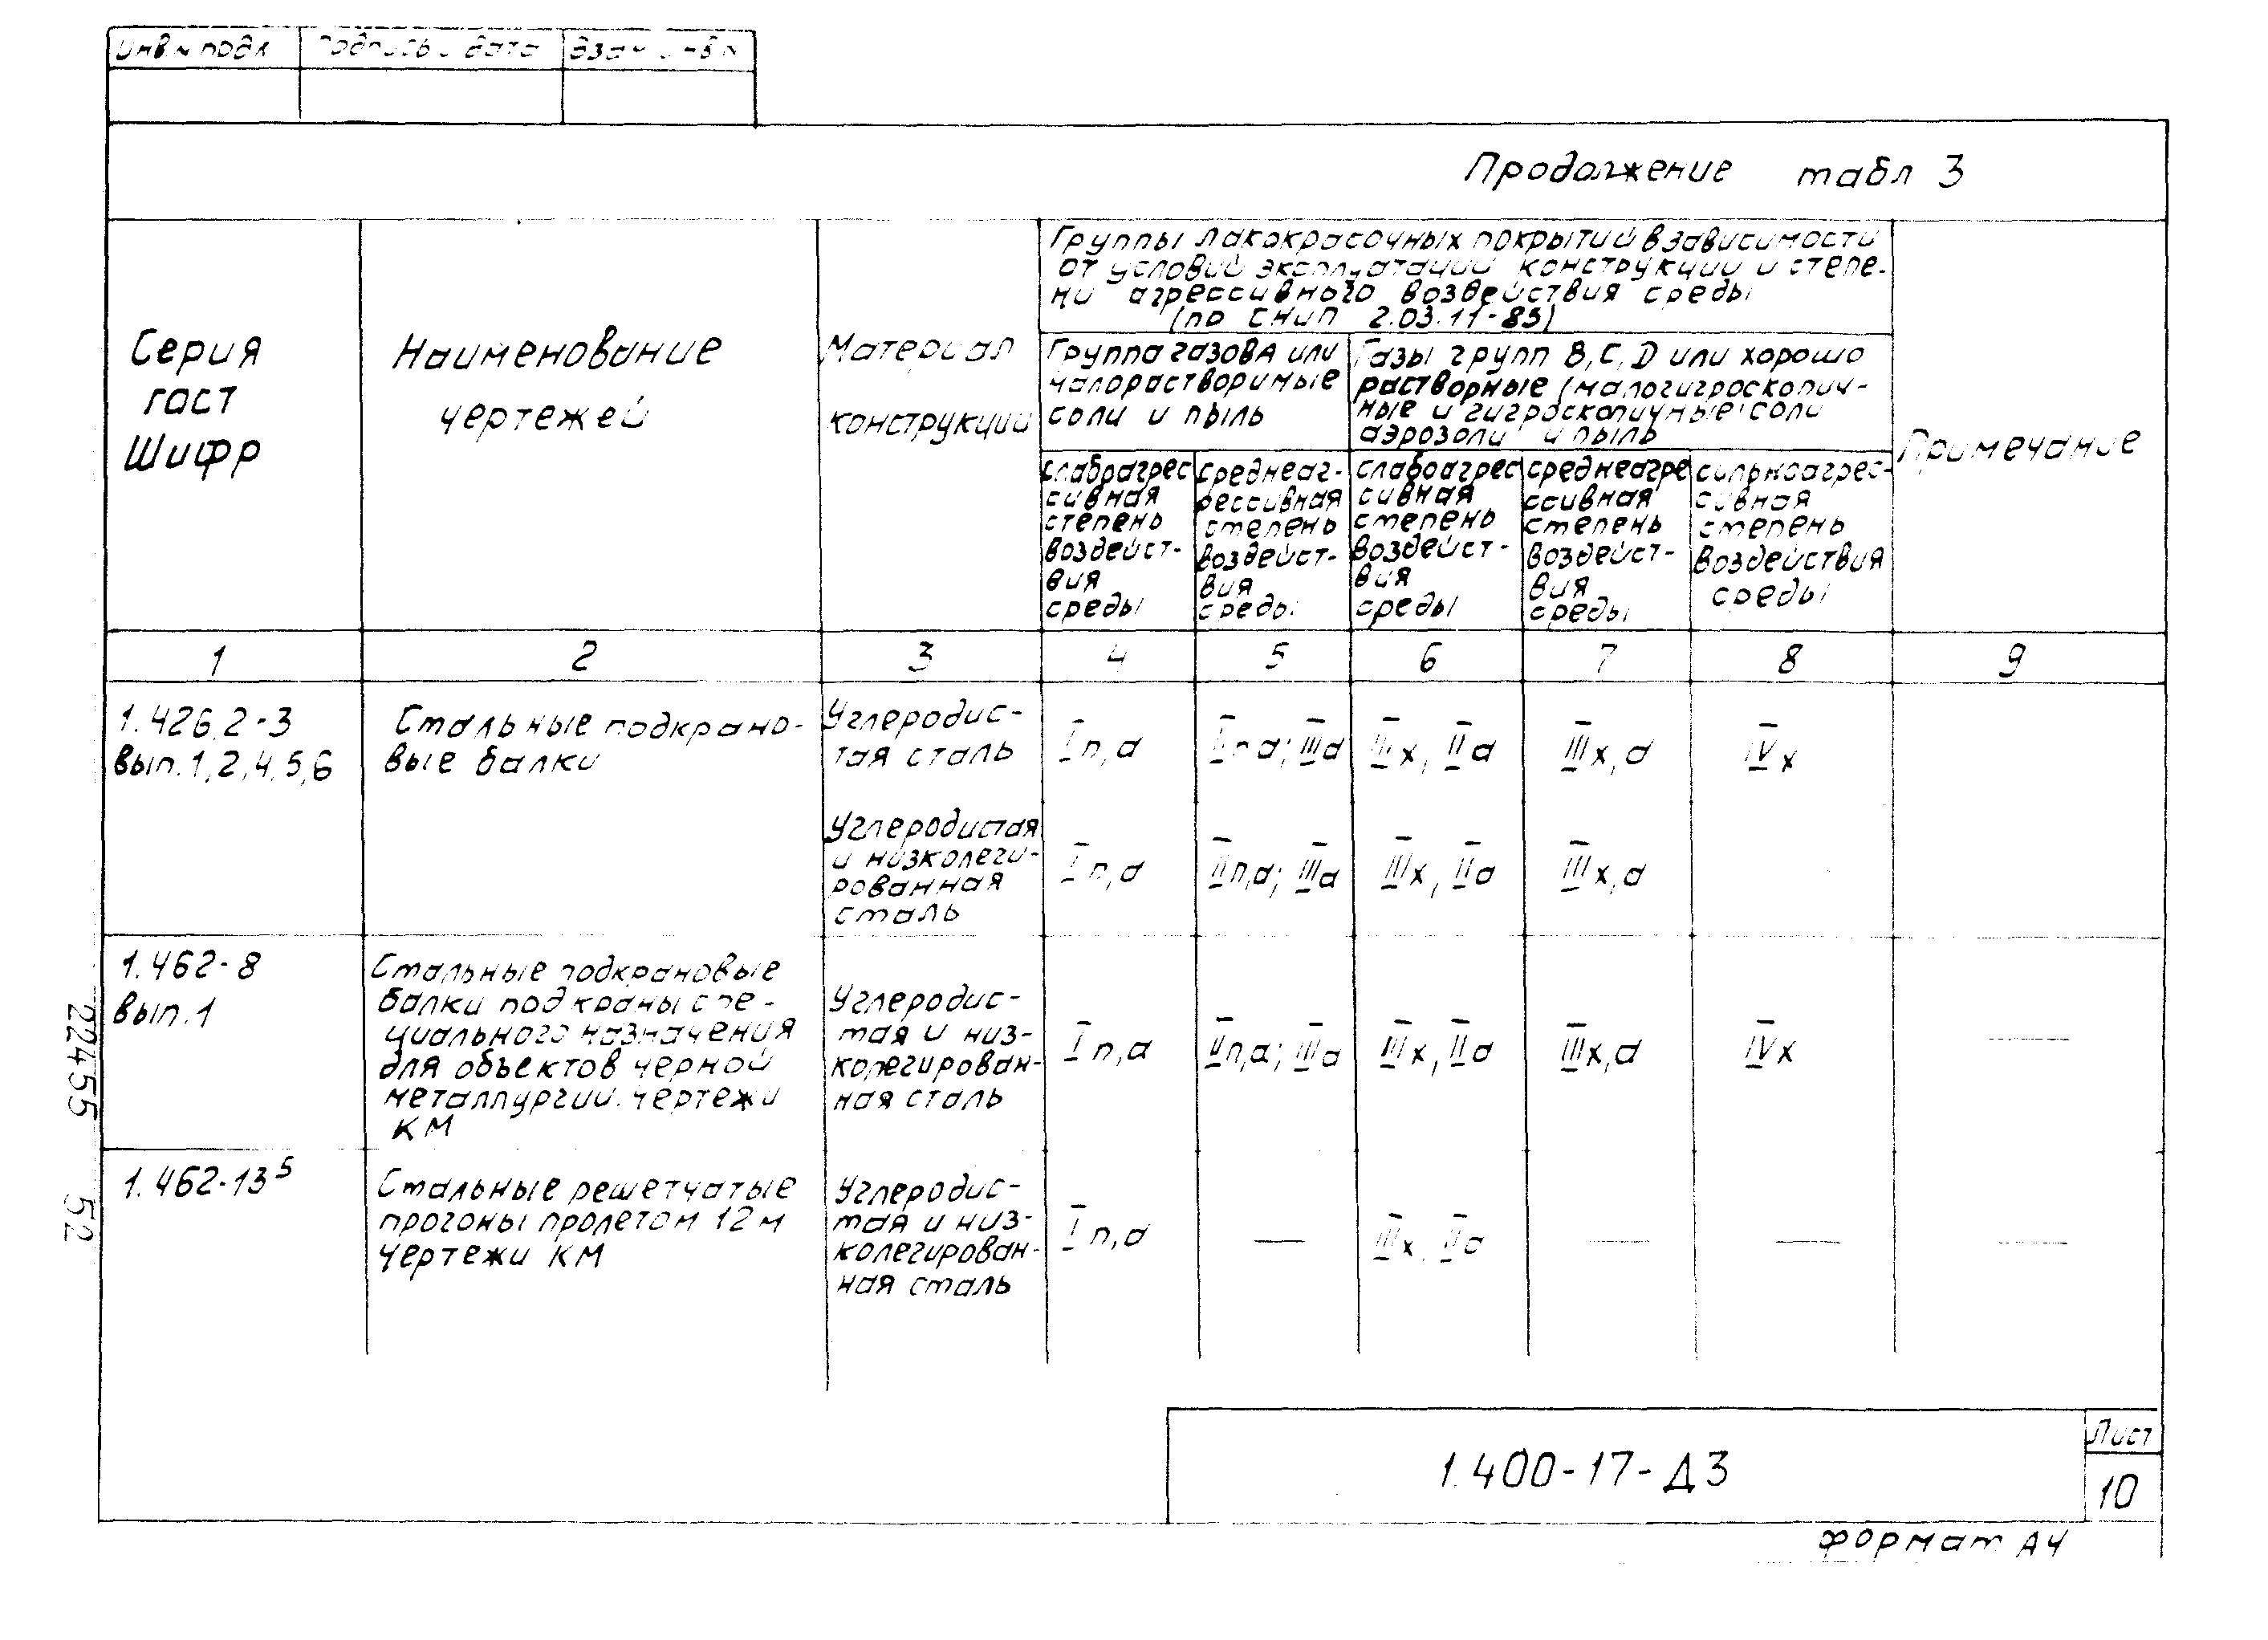 инв N подл
Подпись и дата
Взам инв N
Продолжение табл 3
Серия
гост
Шифр
Наименование
чертежей
Материал
конструкции
Группы лакокрасочных покрытий в зависимости
от условий эксплуатации конструкции и степе-
ни агрессивного воздействия среды
(по СНиП 2.03.11-85)
Группа газов А или
малорастворимые
соли и пыль
Газы групп В, С, D или хорошо
растворные (малогигроскопич-
ные и гигроскопичные) соли
аэрозоли и пыль
слабоагрес
сивная
степень
воздейст-
вия
среды
среднеаг-
рессивная
степень
воздейст-
вия
среды
слабоагрес
сивная
степень
воздейст-
вия
среды
среднеагре
ссивная
степень
воздейст-
вия
среды
сильноагрес-
сивная
степень
воздействия
среды
Примечание
1 2 3 4 5 6 7 8 9
1.426.2-3
Вып. 1, 2, 4, 5, 6
Стальные подкрано-
вые балки
Углеродис-
тая сталь
I п, а
II п а; III а
III х, II а
III х, а
IV х
Углеродистая
и низколеги-
рованная
сталь
I п, а
II п, а; III а
III х, II а
III х, а
1.462-8
Вып. 1
Стальные подкрановые
балки под краны спе-
циального назначения
для объектов черной
металлургии. чертежи
КМ
Углеродис-
тая и низ-
колегирован-
ная сталь
I п, а
II п, а; III а
III х, II а
III х, а
IV х
—
1.462-13⁵
Стальные решетчатые
прогоны пролетом 12 м
Чертежи КМ
Углеродис-
тая и низ-
колегирован-
ная сталь
I п, а
—
III х, II а
—
—
—
22455 52
1.400-17-Д3
Лист
10
формат А4